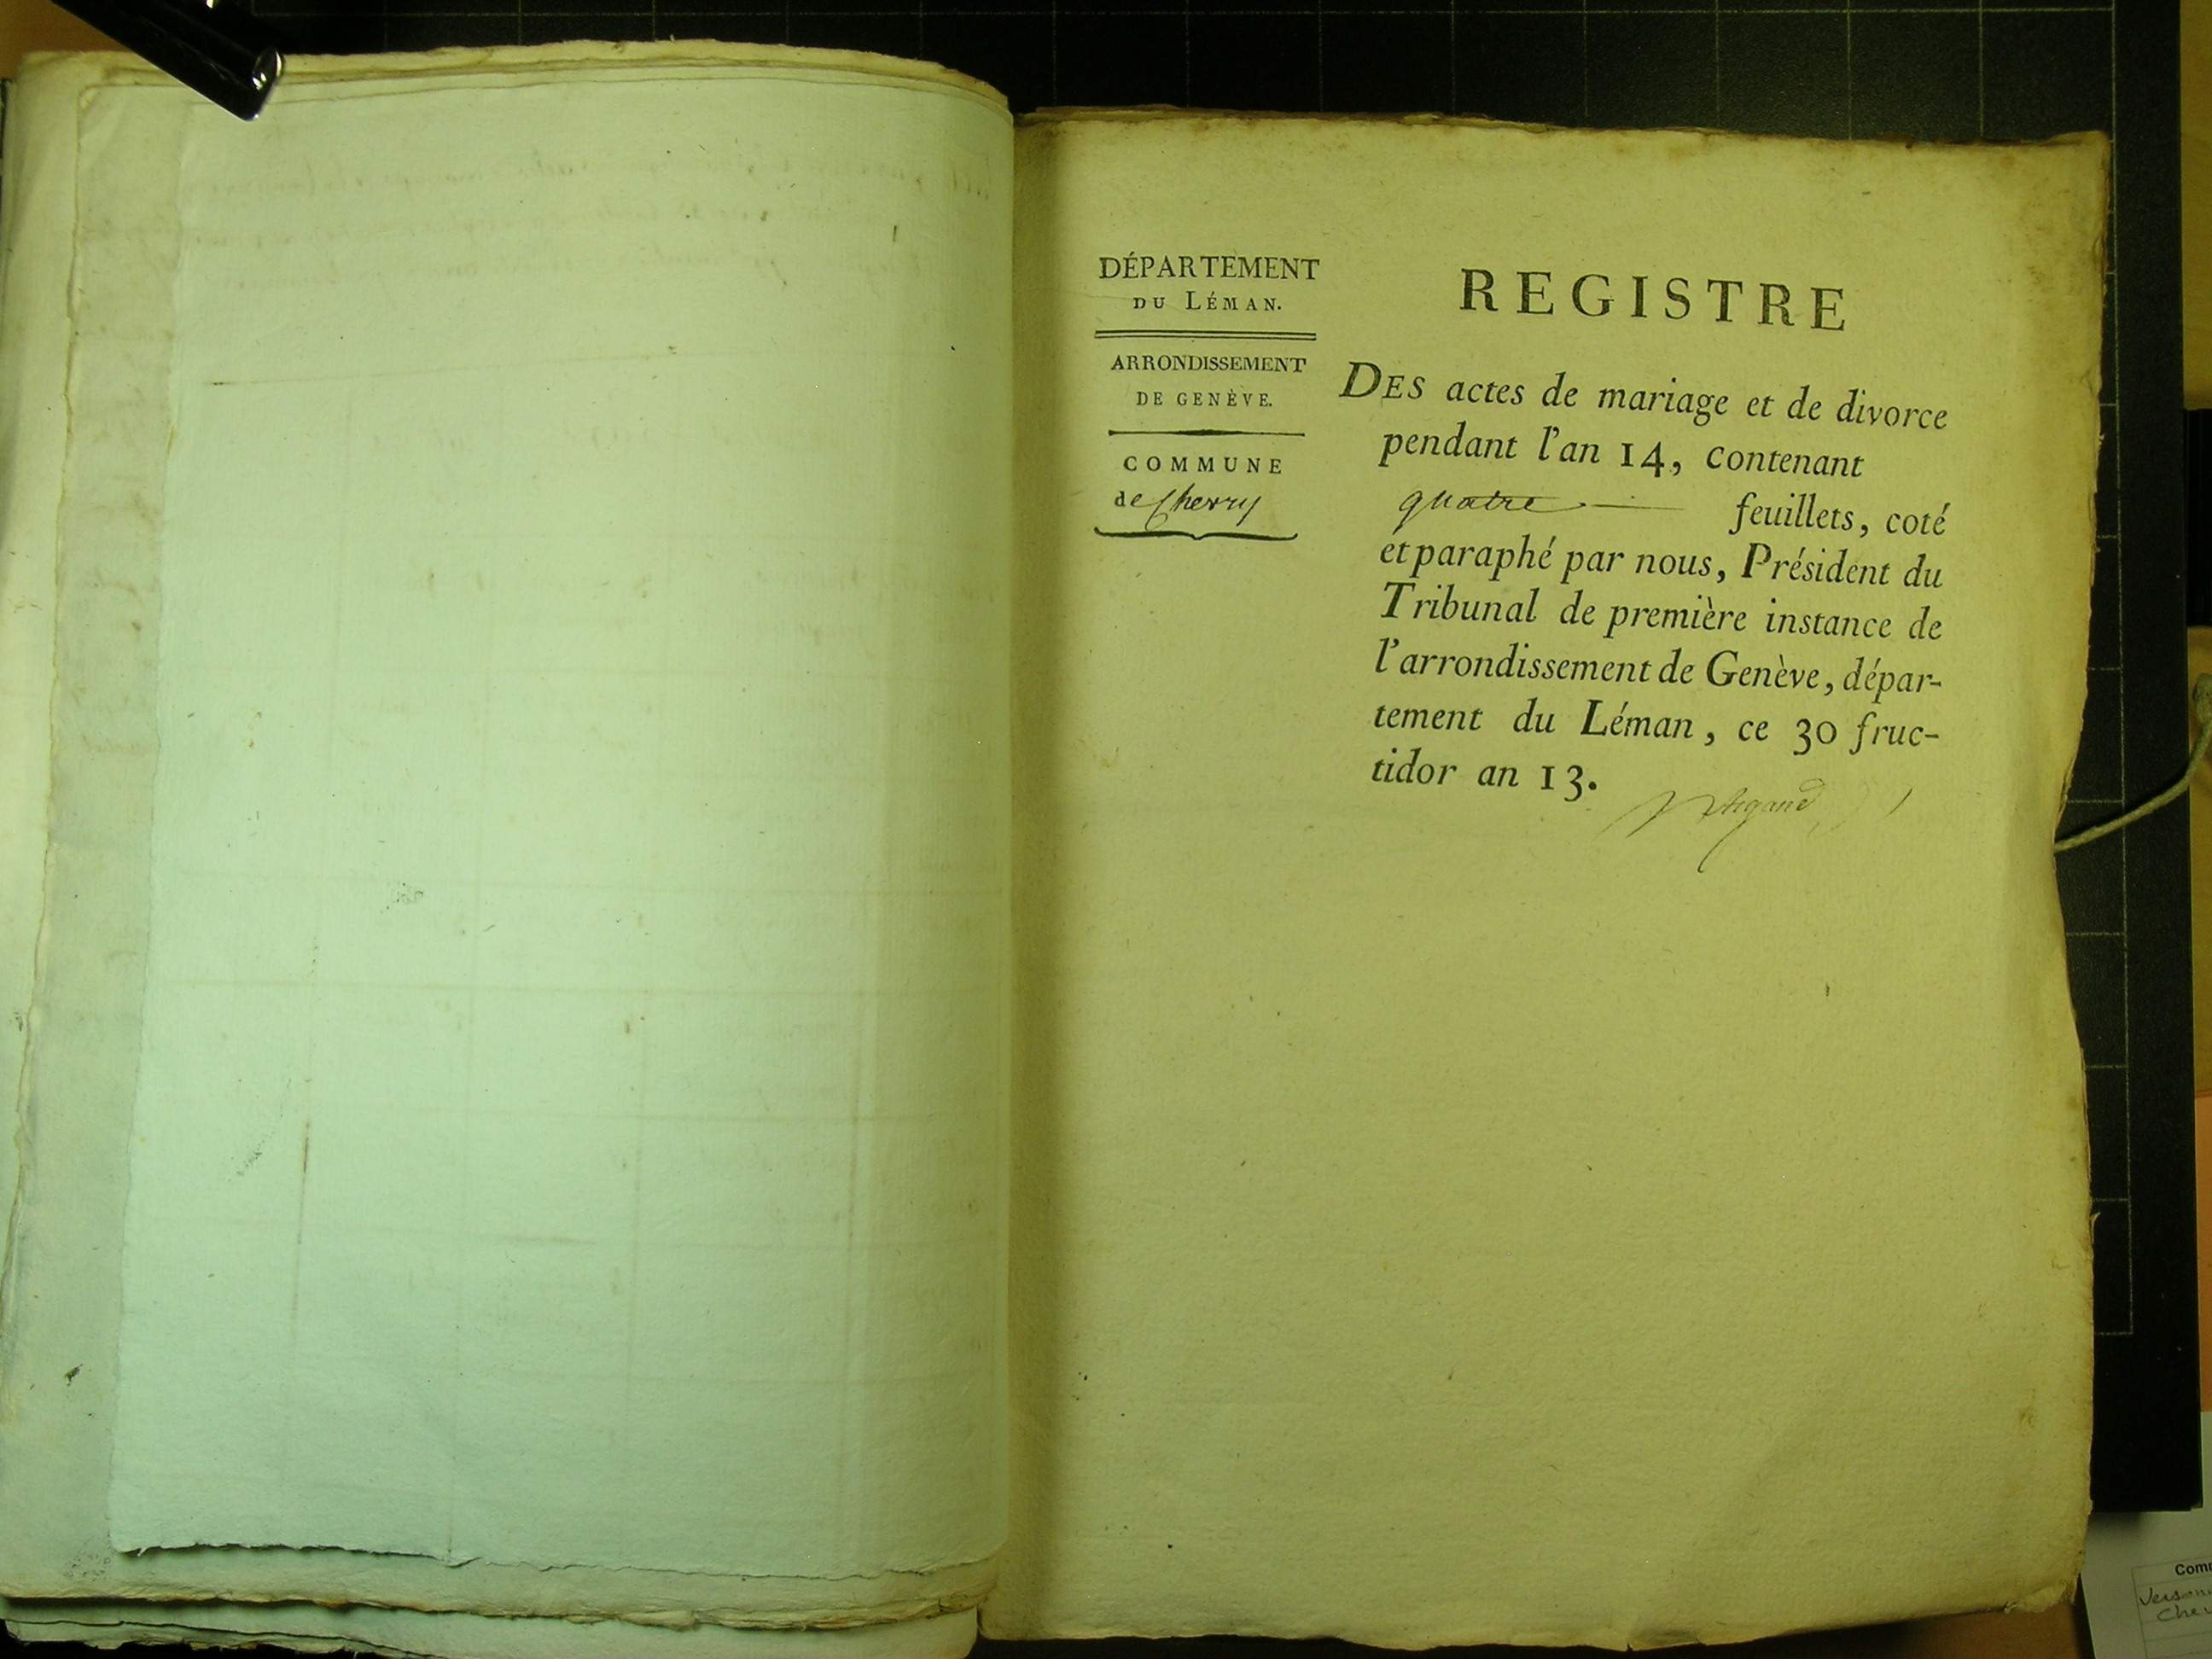 DÉPARTEMENT
DU LÉMAN.
ARRONDISSEMENT
DE GENÈVE.
COMMUNE
de Chevry
REGISTRE
DES actes de mariage et de divorce
pendant l'an 14, contenant
quatre feuillets, coté
et paraphé par nous, Président du
Tribunal de première instance de
l'arrondissement de Genève, dépar-
tement du Léman, ce 30 fruc-
tidor an 13.
Com